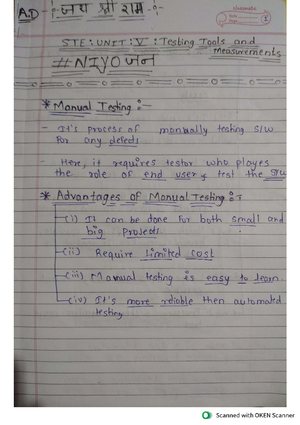 A.D
जय श्री राम
STE : UNIT : V : Testing Tools and
Measurements
#NIYOजन
* Manual Testing :-
- It's process of manually testing S/W
for any defects
- Here, it requires testor who playes
the role of end user & test the S/W
* Advantages of Manual Testing :-
(i) It can be done for both small and
big projects
(ii) Require limited cost
(iii) Manual testing is easy to learn
(iv) It's more reliable then automated
testing
Scanned with OKEN Scanner